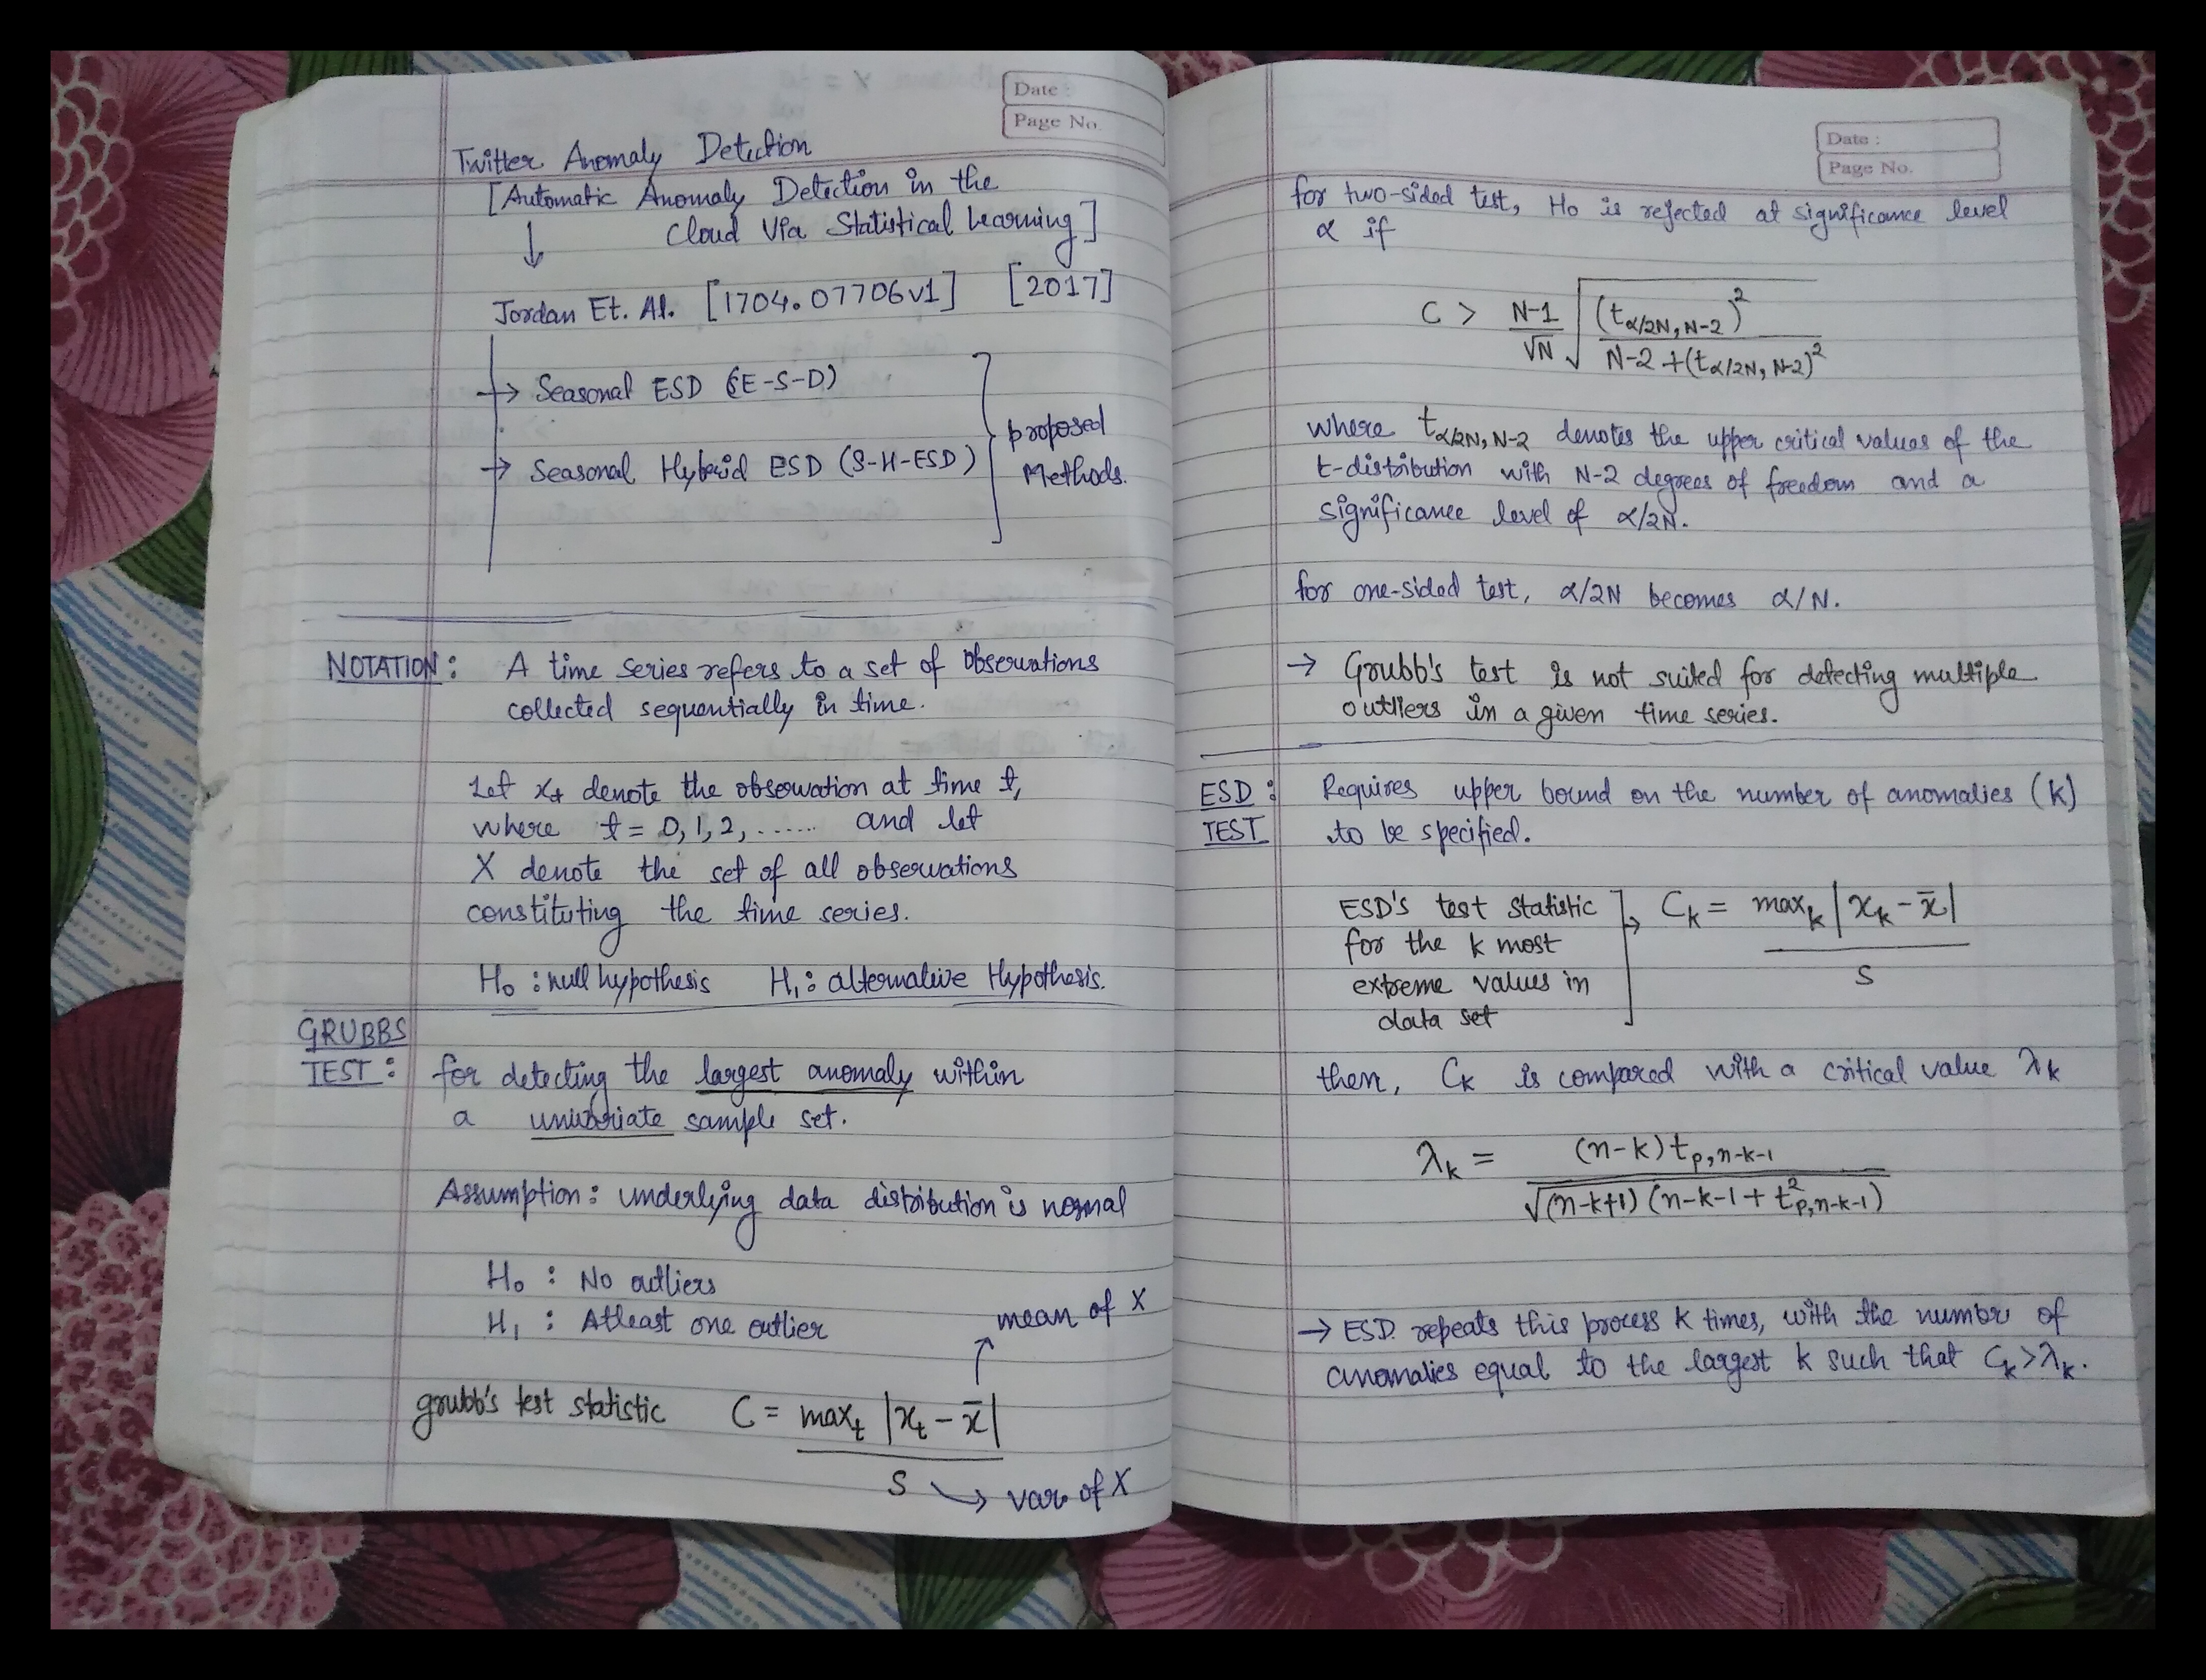 Date :
Page No.
Twitter Anomaly Detection
[Automatic Anomaly Detection in the
Cloud Via Statistical Learning]
↓
Jordan Et. Al. [1704.07706v1] [2017]
→ Seasonal ESD (S-E-S-D)
→ Seasonal Hybrid ESD (S-H-ESD)
proposed
Methods.
NOTATION : A time series refers to a set of observations
collected sequentially in time.
Let x_t denote the observation at time t,
where t = 0, 1, 2, ...... and let
X denote the set of all observations
constituting the time series.
H₀ : null hypothesis H₁ : alternative Hypothesis.
GRUBBS
TEST : for detecting the largest anomaly within
a univariate sample set.
Assumption : underlying data distribution is normal
H₀ : No outliers
H₁ : Atleast one outlier
mean of X
grubb's test statistic C = max_t |x_t - x̄|
S → var of X
Date :
Page No.
for two-sided test, H₀ is rejected at significance level
α if
C > N-1 / √N √( (t_α/2N, N-2)² / N-2 + (t_α/2N, N-2)² )
where t_α/2N, N-2 denotes the upper critical values of the
t-distribution with N-2 degrees of freedom and a
significance level of α/2N.
for one-sided test, α/2N becomes α/N.
→ Grubb's test is not suited for detecting multiple
outliers in a given time series.
ESD : Requires upper bound on the number of anomalies (k)
TEST to be specified.
ESD's test statistic → C_k = max_k |x_k - x̄| / S
for the k most
extreme values in
data set
then, C_k is compared with a critical value λ_k
λ_k = (n-k) t_p,n-k-1 / √(n-k+1) (n-k-1 + t²_p,n-k-1)
→ ESD repeats this process k times, with the number of
anomalies equal to the largest k such that C_k > λ_k.